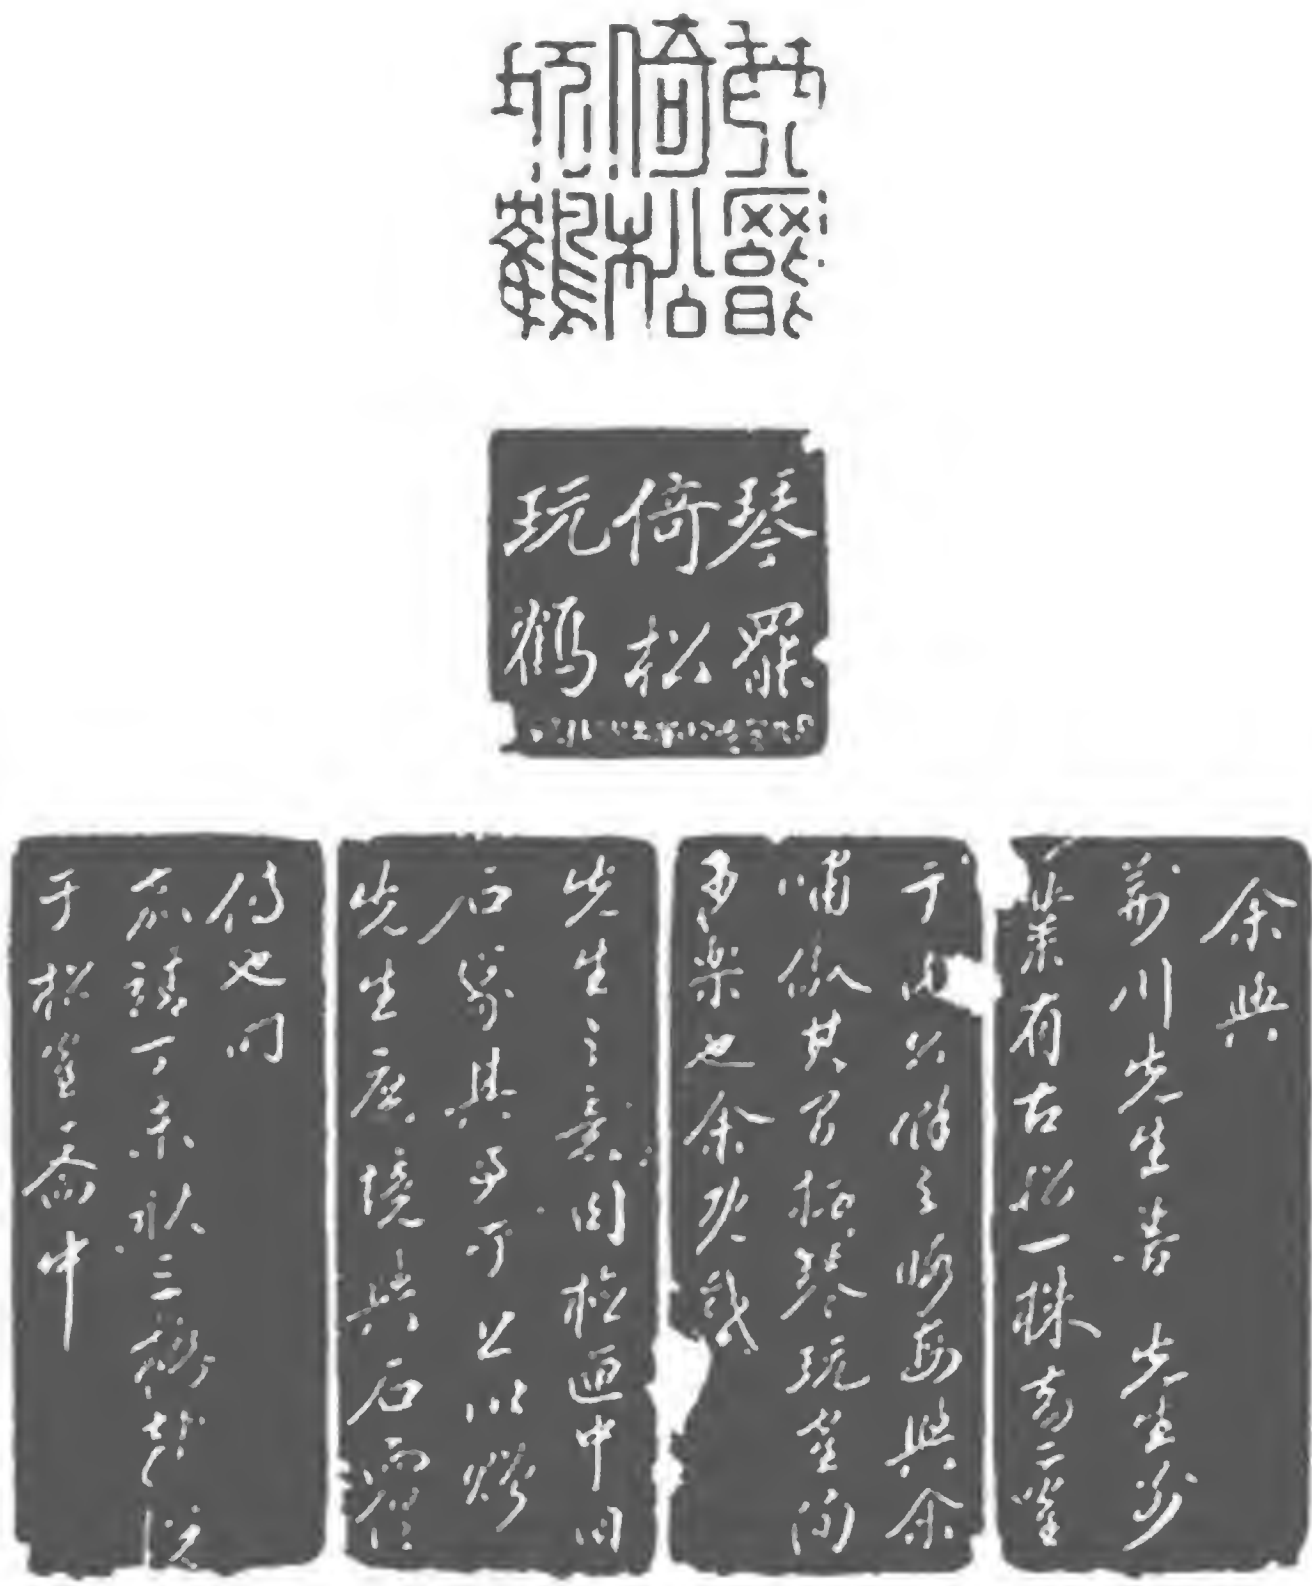 琴罷
倚松
玩鶴
琴罷
倚松
玩鶴
余與
荊川先生善先生別
業有古松一株畜二鶴
于內公餘之暇每與余
嘯傲其間撫琴玩鶴洵
可樂也余既感
先生之意因檢匣中舊
石篆其事于上以贈
先生庶境與石而俱
傳也時
嘉靖丁未秋三橋彭識
于松鶴齋中